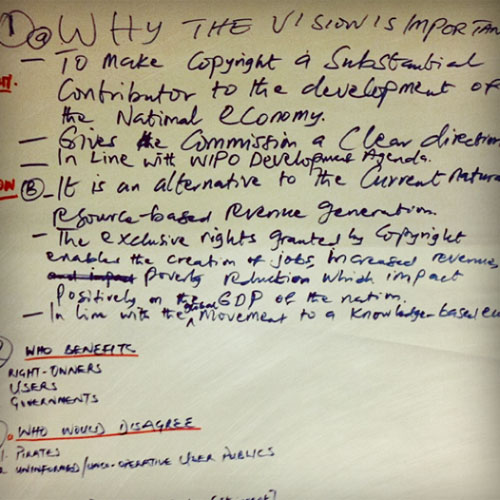 1 a WHY THE VISION IS IMPORTAN
- To make Copyright a Substantial
Contributor to the development of
the National economy.
- Gives the Commission a Clear direction
- In Line with WIPO Development Agenda.
B - It is an alternative to the Current Natural
resource-based revenue generation.
- The exclusive rights granted by Copyright
enables the creation of jobs, Increased revenue,
Poverty reduction which impact
Positively on the GDP of the nation.
- In line with the global Movement to a Knowledge-based
WHO BENEFITS
RIGHT-OWNERS
USERS
GOVERNMENTS
WHO WOULD DISAGREE
1. PIRATES
UNINFORMED/UNCO-OPERATIVE USER PUBLICS